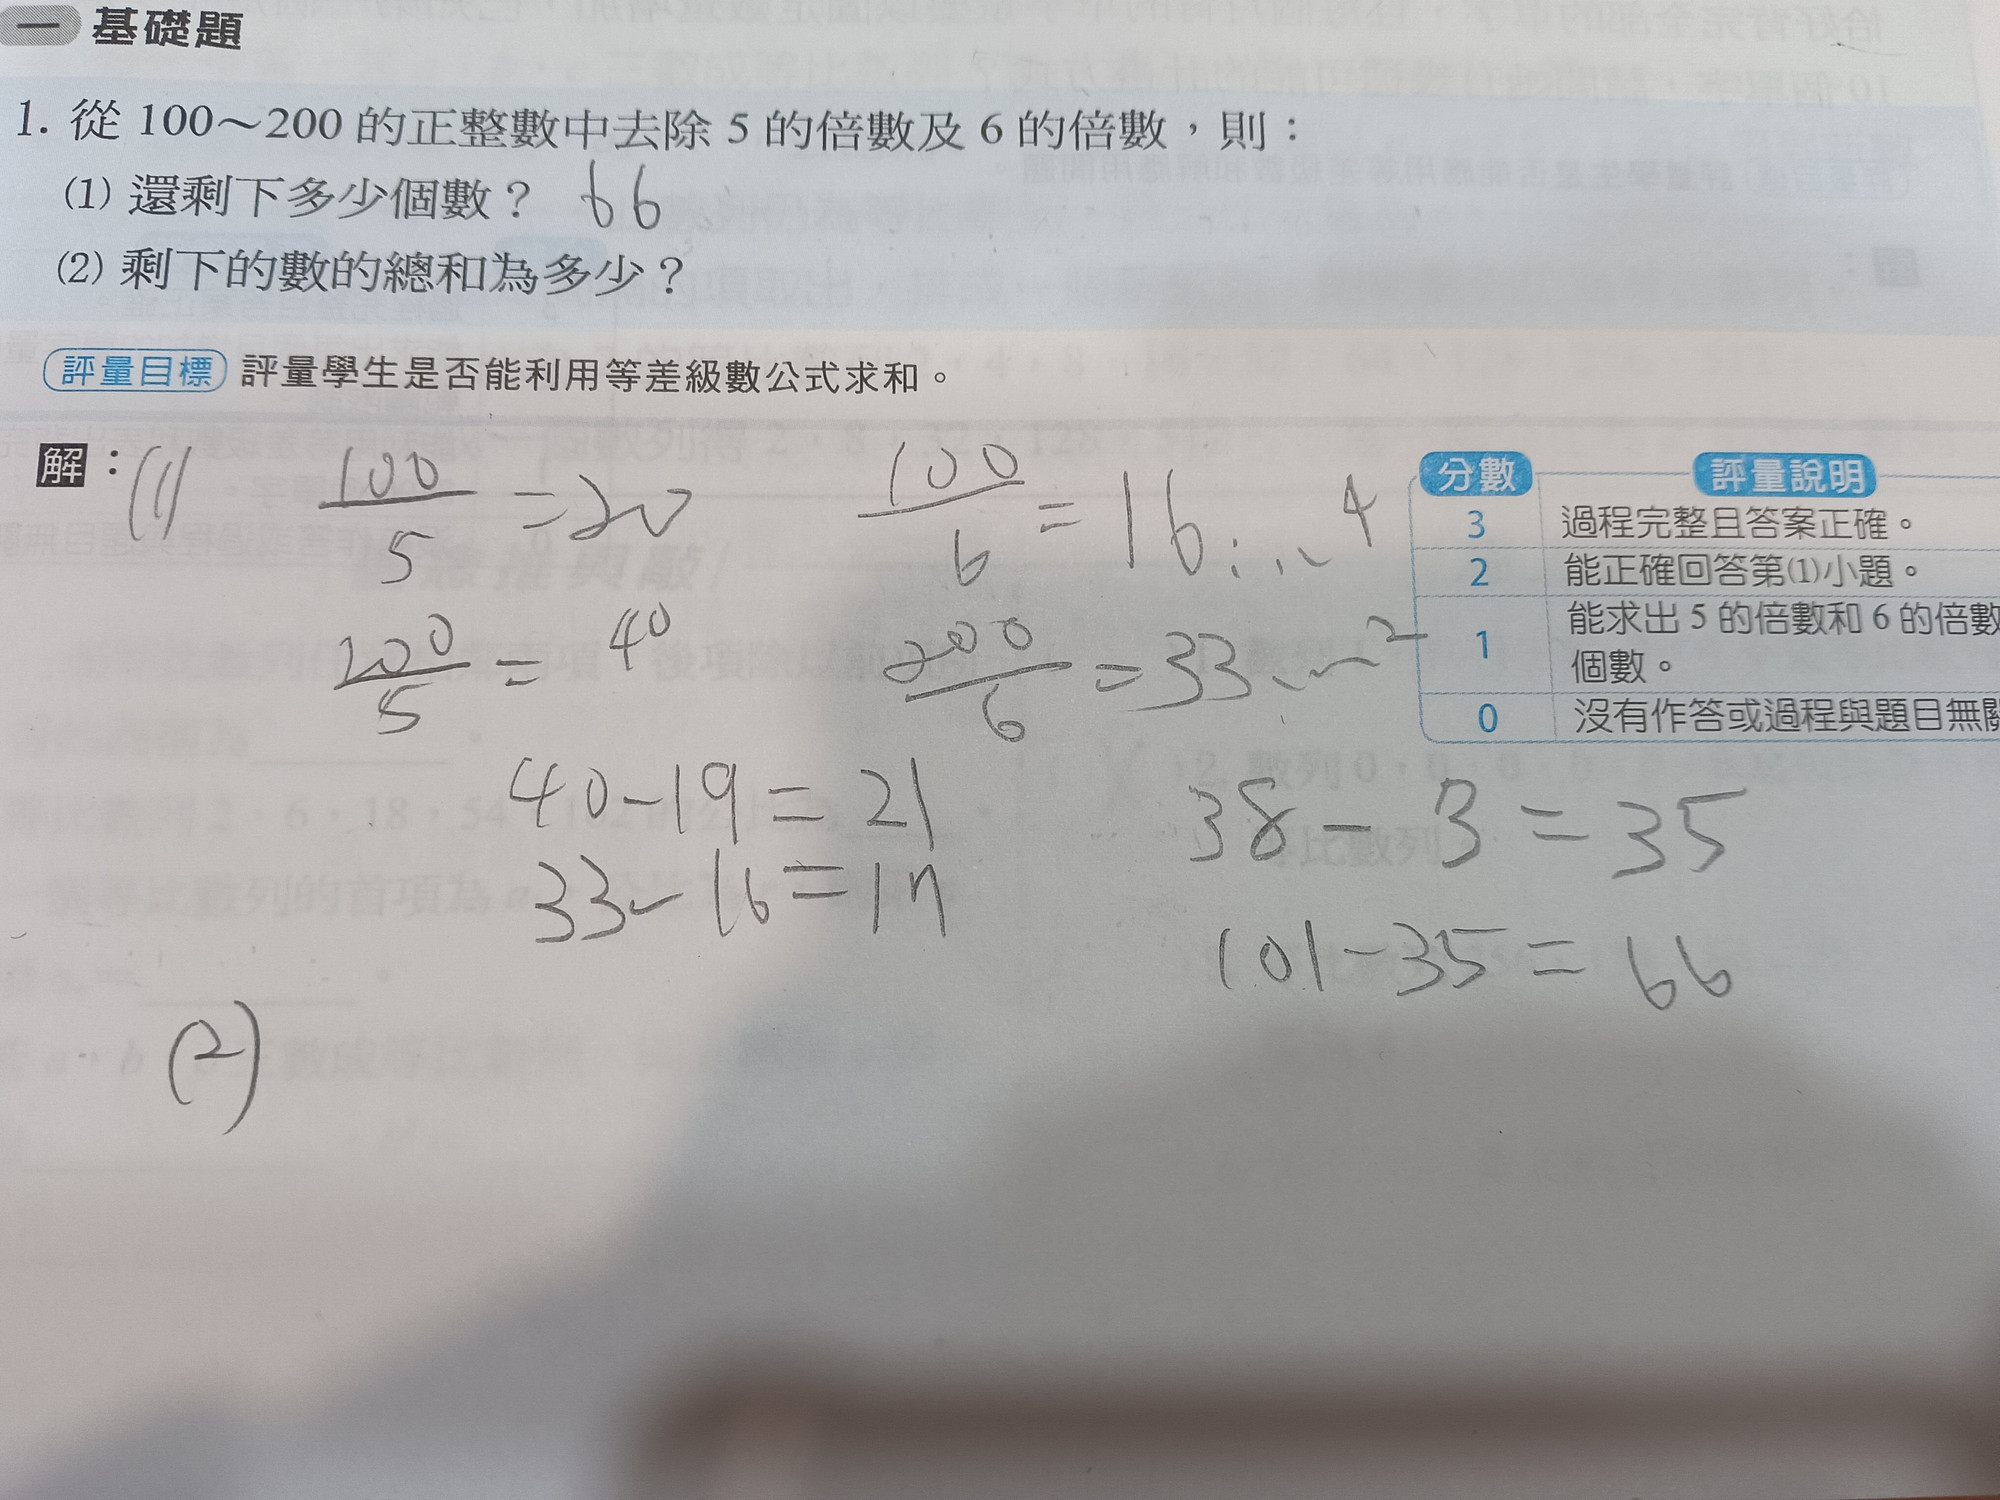 一 基礎題
1. 從 100～200 的正整數中去除 5 的倍數及 6 的倍數，則：
(1) 還剩下多少個數？ 66
(2) 剩下的數的總和為多少？
評量目標 評量學生是否能利用等差級數公式求和。
解：(1) 100/5 = 20 100/6 = 16...4
200/5 = 40 200/6 = 33...2
40-19=21
33-16=17
38-3=35
101-35=66
(2)
分數 評量說明
3 過程完整且答案正確。
2 能正確回答第(1)小題。
1 能求出 5 的倍數和 6 的倍數
個數。
0 沒有作答或過程與題目無關